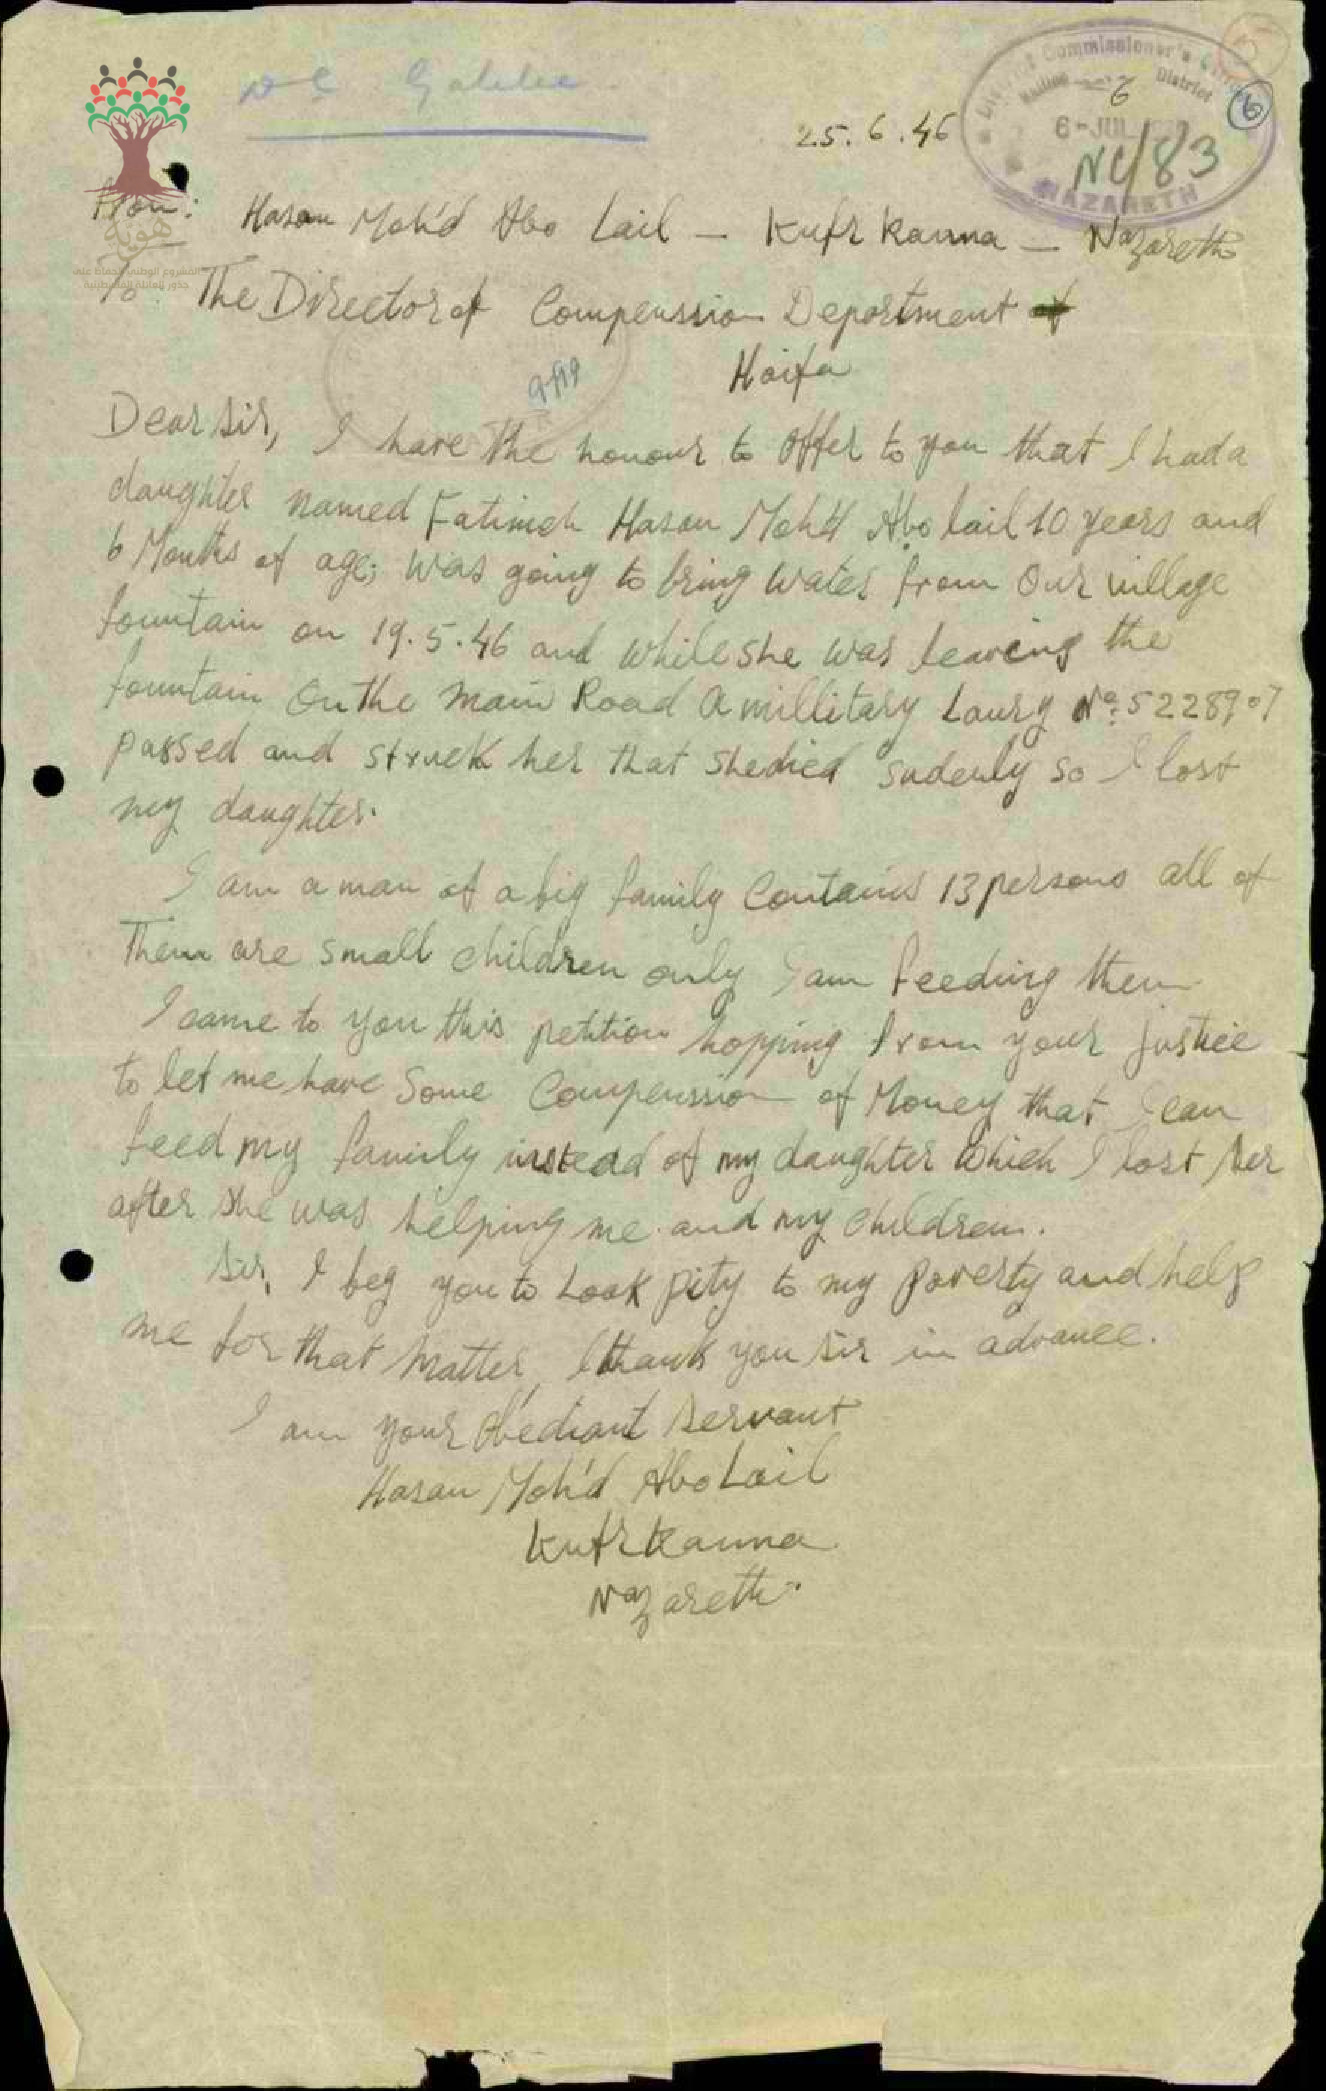 D C Galilee
District Commissioner's Office
Galilee District
6
6
6-JUL
NC/83
NAZARETH
25.6.46
هوية
المشروع الوطني للحفاظ على
جذور العائلة الفلسطينية
From: Hasan Moh'd Abo Lail - Kufr Kanna - Nazareth
To: The Director of Compenssion Department of
Haifa
Dear Sir, I have the honour to offer to you that I had a
daughter named Fatimeh Hasan Moh'd Abo Lail 10 years and
6 Months of age; was going to bring water from our village
fountain on 19.5.46 and while she was leaving the
fountain on the main Road a millitary Laury No: 5228907
passed and struck her that she died sudenly so I lost
my daughter.
I am a man of a big family Contains 13 persons all of
Them are small children only I am feeding them
I came to you this petition hopping from your justice
to let me have Some Compenssion of Money that I can
feed my family instead of my daughter which I lost her
after she was helping me and my children.
Sir, I beg you to Look pity to my poverty and help
me for that matter, I thank you sir in advance.
I am your obediant servant
Hasan Moh'd Abo Lail
Kufr Kanna
Nazareth.